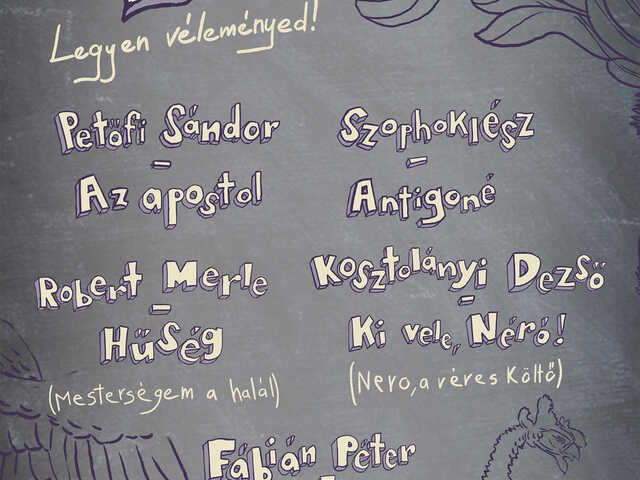 Legyen véleményed!
Petőfi Sándor
-
Az apostol
Szophoklész
-
Antigoné
Robert Merle
-
Hűség
(Mesterségem a halál)
Kosztolányi Dezső
-
Ki vele, Néró!
(Nero, a véres költő)
Fábián Péter